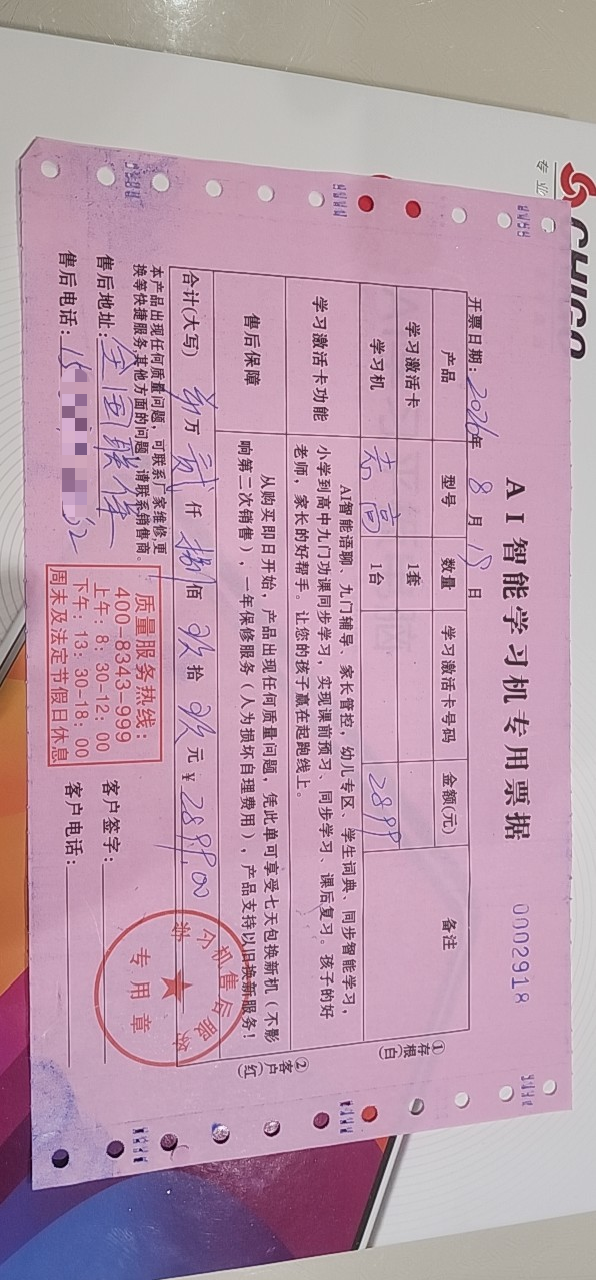 CHIGO
专业
AI智能学习机专用票据
0002918
开票日期：2026年8月15日
产品 型号 数量 学习激活卡号码 金额(元) 备注
学习激活卡 1套
学习机 志高 1台 2899
学习激活卡功能 AI智能语聊、九门辅导、家长管控，幼儿专区、学生词典、同步智能学习，
小学到高中九门功课同步学习，实现课前预习、同步学习、课后复习。孩子的好
老师，家长的好帮手。让您的孩子赢在起跑线上。
售后保障 从购买即日开始，产品出现任何质量问题，凭此单可享受七天包换新机（不影
响第二次销售），一年保修服务（人为损坏自理费用），产品支持以旧换新服务！
合计(大写) 万贰仟捌佰玖拾玖元 ¥2899.00
①存根(白)
②客户(红)
本产品出现任何质量问题，可联系厂家维修更
换等快捷服务其他方面的问题，请联系销售商。
售后地址：全国联保
售后电话：15 32
质量服务热线：
400-8343-999
上午：8：30-12：00
下午：13：30-18：00
周末及法定节假日休息
客户签字：
客户电话：
机售后服
专用章